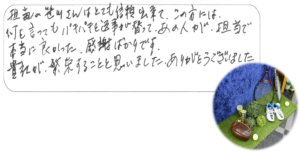 担当の笹川さんはとても信頼出来て、この方には、
何を言ってもパキパキと返事が替って、あの人が、担当で
本当に良かった。感謝ばかりです。
貴社が、繁栄することと思いました。ありがとうございました